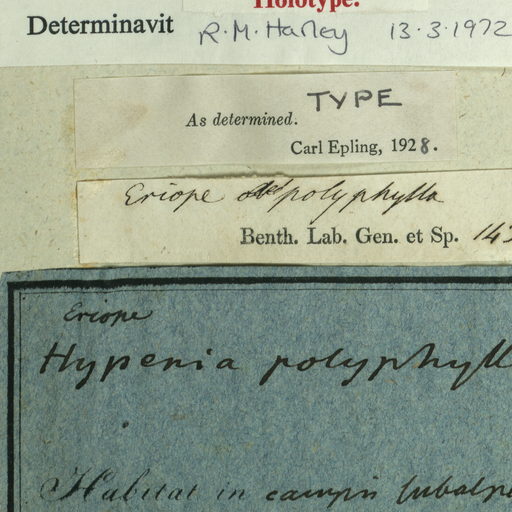 Holotype.
Determinavit R.M. Harley 13.3.1972
TYPE
As determined.
Carl Epling, 1928.
Eriope polyphylla
Benth. Lab. Gen. et Sp. 143
Eriope
Hypenia polyphyll
Habitat in campis subalpe